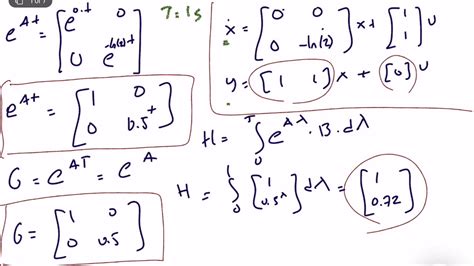 e^{At} = [e^{0.t} 0; 0 e^{-ln(2)t}]
T = 1s
ẋ = [0 0; 0 -ln(2)] x + [1; 1] u
y = [1 1] x + [0] u
e^{At} = [1 0; 0 0.5^t]
H = ∫_0^T e^{Aλ} · B · dλ
G = e^{AT} = e^A
H = ∫_0^1 [1; 0.5^λ] dλ = [1; 0.72]
G = [1 0; 0 0.5]